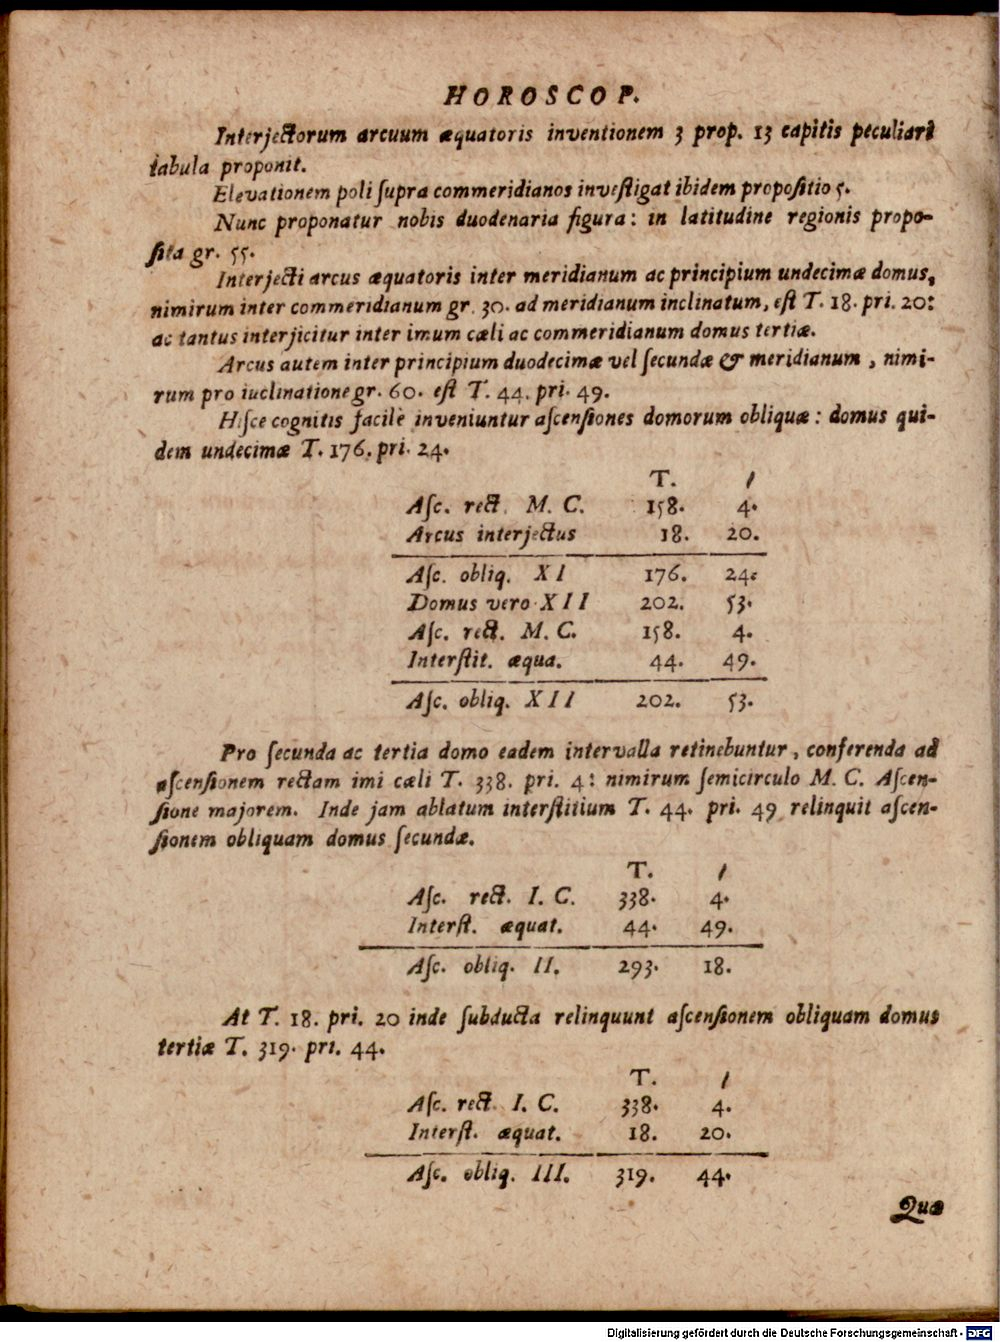 HOROSCOP.
Interjectorum arcuum æquatoris inventionem 3 prop. 13 capitis peculiari
tabula proponit.
Elevationem poli ſupra commeridianos inveſtigat ibidem propoſitio 5.
Nunc proponatur nobis duodenaria figura: in latitudine regionis propo-
ſita gr. 55.
Interjecti arcus æquatoris inter meridianum ac principium undecimæ domus,
nimirum inter commeridianum gr. 30. ad meridianum inclinatum, eſt T. 18. pri. 20:
ac tantus interjicitur inter imum cæli ac commeridianum domus tertiæ.
Arcus autem inter principium duodecimæ vel ſecundæ & meridianum, nimi-
rum pro iuclinatione gr. 60. eſt T. 44. pri. 49.
Hiſce cognitis facilè inveniuntur aſcenſiones domorum obliquæ: domus qui-
dem undecimæ T. 176. pri. 24.
T. /
Aſc. rect. M. C. 158. 4.
Arcus interjectus 18. 20.
Aſc. obliq. XI 176. 24.
Domus vero XII 202. 53.
Aſc. rect. M. C. 158. 4.
Interſtit. æqua. 44. 49.
Aſc. obliq. XII 202. 53.
Pro ſecunda ac tertia domo eadem intervalla retinebuntur, conferenda ad
aſcenſionem rectam imi cæli T. 338. pri. 4: nimirum ſemicirculo M. C. Aſcen-
ſione majorem. Inde jam ablatum interſtitium T. 44. pri. 49 relinquit aſcen-
ſionem obliquam domus ſecundæ.
T. /
Aſc. rect. I. C. 338. 4.
Interſt. æquat. 44. 49.
Aſc. obliq. II. 293. 18.
At T. 18. pri. 20 inde ſubducta relinquunt aſcenſionem obliquam domus
tertiæ T. 319. pri. 44.
T. /
Aſc. rect. I. C. 338. 4.
Interſt. æquat. 18. 20.
Aſc. obliq. III. 319. 44.
Quæ
Digitalisierung gefördert durch die Deutsche Forschungsgemeinschaft - DFG